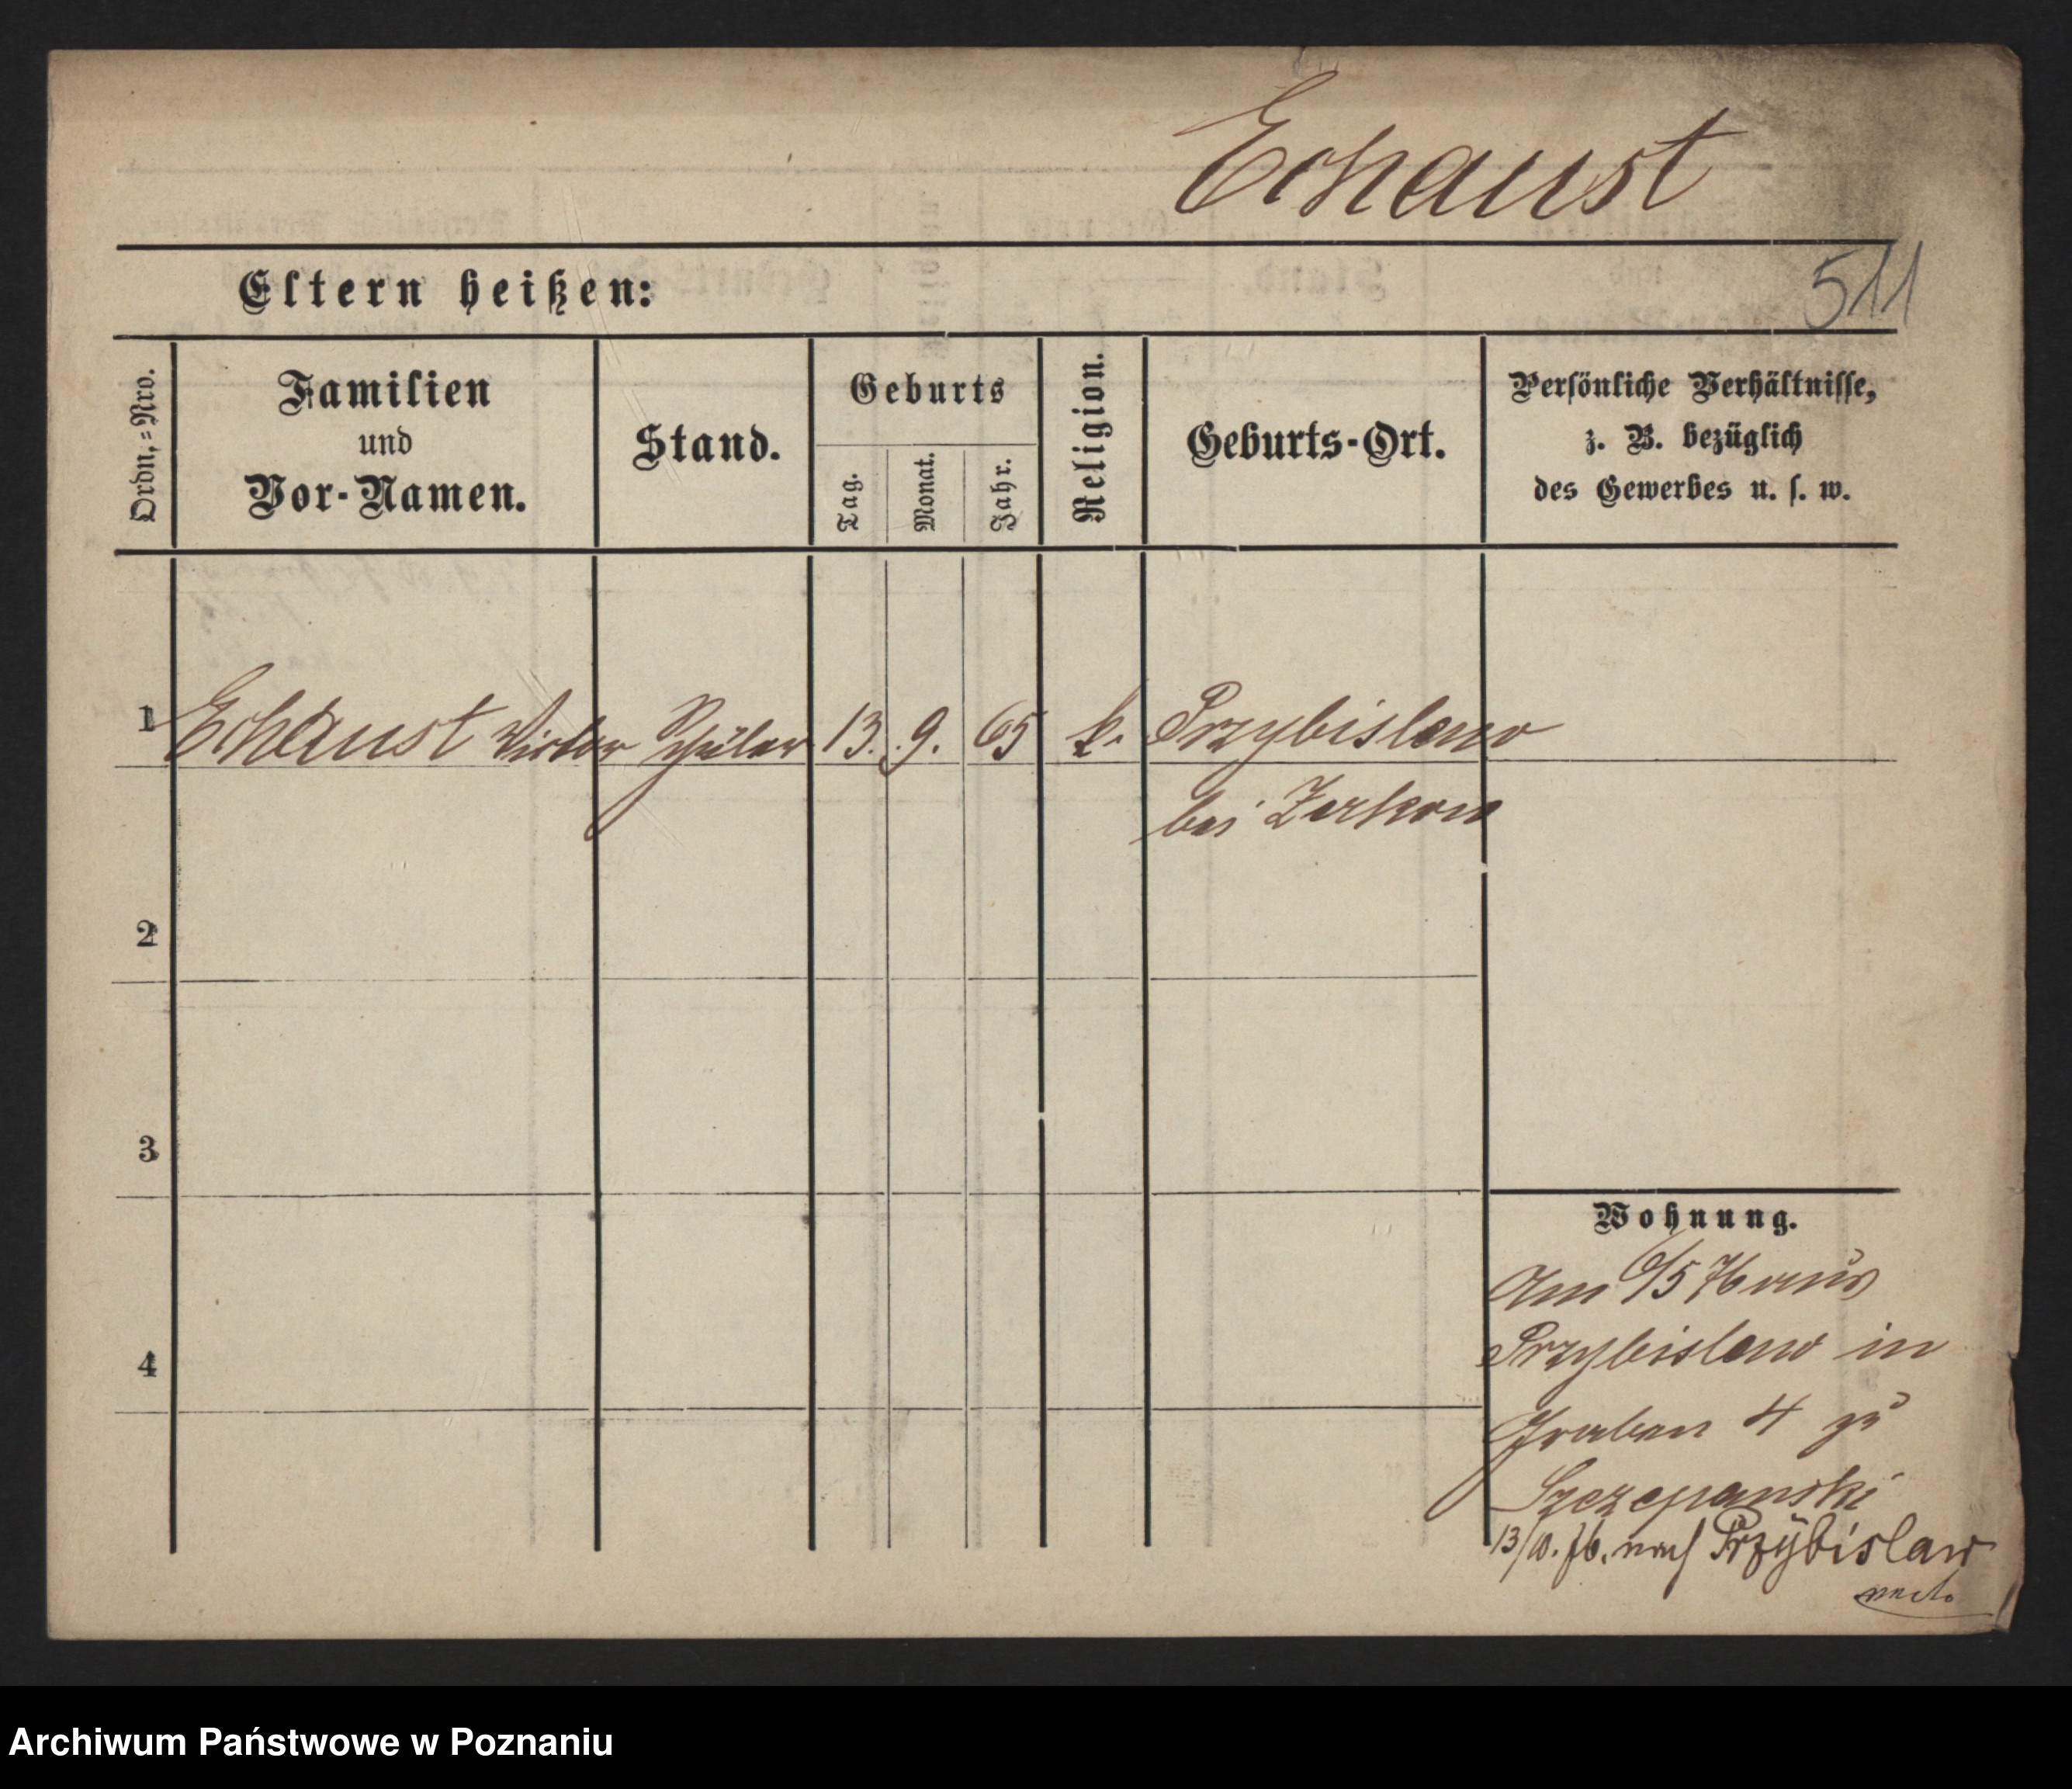 Echaust
Eltern heißen:
511
Ordn.=Nro.
Familien
und
Vor-Namen.
Stand.
Geburts
Tag.
Monat.
Jahr.
Religion.
Geburts-Ort.
Persönliche Verhältnisse,
z. B. bezüglich
des Gewerbes u. s. w.
1 Echaust Victor Schüler 13. 9. 65 k. Przybislaw
bei Zerkow
2
3
4
Wohnung.
Am 6/5 76 aus
Przybislaw in
Graben 4 zu
Szczepanski
13/10. 76. nach Przybislaw
Archiwum Państwowe w Poznaniu